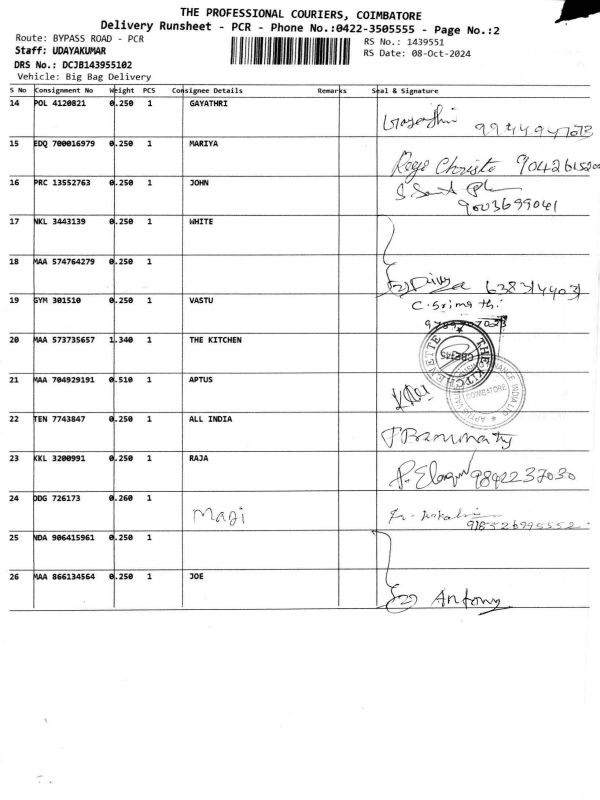 THE PROFESSIONAL COURIERS, COIMBATORE
Delivery Runsheet - PCR - Phone No.:0422-3505555 - Page No.:2
Route: BYPASS ROAD - PCR
RS No.: 1439551
Staff: UDAYAKUMAR
RS Date: 08-Oct-2024
DRS No.: DCJB143955102
Vehicle: Big Bag Delivery
S No Consignment No Weight PCS Consignee Details Remarks Seal & Signature
14 POL 4120821 0.250 1 GAYATHRI
15 EDQ 700016979 0.250 1 MARIYA
16 PRC 13552763 0.250 1 JOHN
9003699041
17 NKL 3443139 0.250 1 WHITE
18 MAA 574764279 0.250 1
(2) Divya 6383144031
19 GYM 301510 0.250 1 VASTU
C. Srimathi
20 MAA 573735657 1.340 1 THE KITCHEN
THE KITCHENETTE
21 MAA 704929191 0.510 1 APTUS
COIMBATORE
22 TEN 7743847 0.250 1 ALL INDIA
23 KKL 3200991 0.250 1 RAJA
9842237030
24 DDG 726173 0.260 1 Magi
25 NDA 906415961 0.250 1
26 MAA 866134564 0.250 1 JOE
(2) Antony